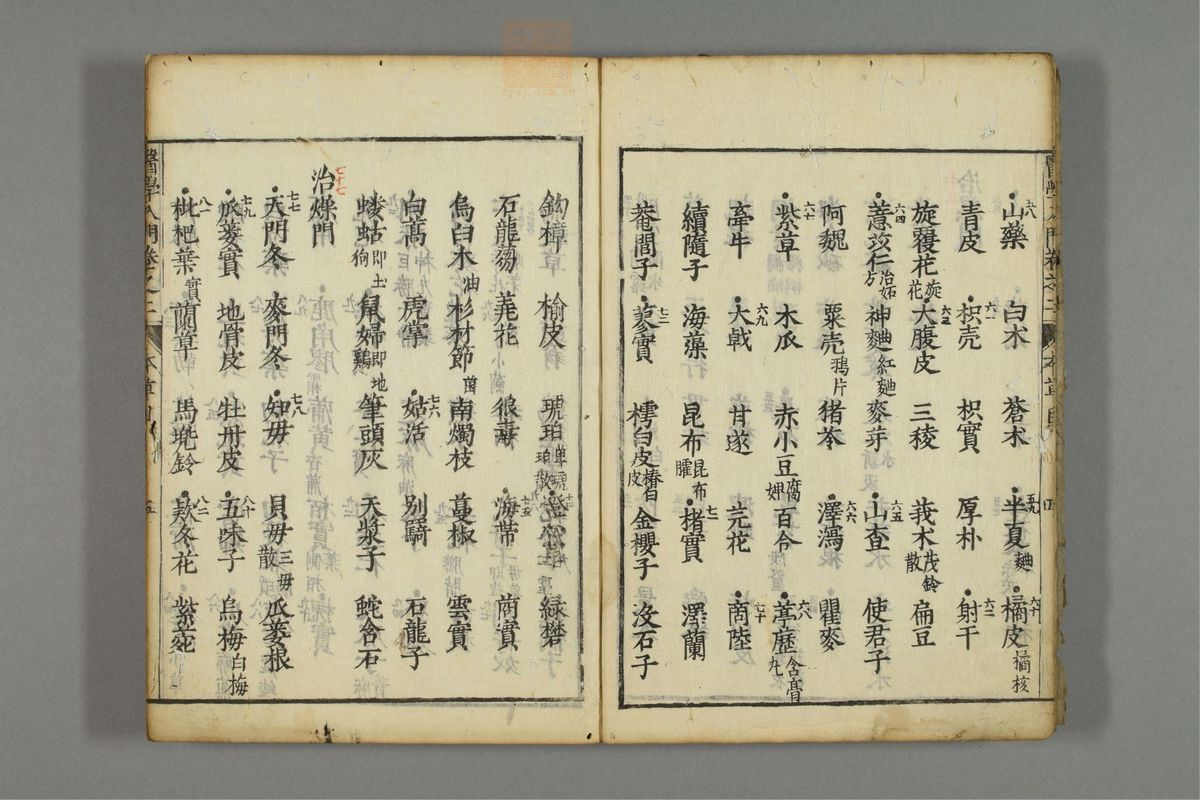 山藥 白朮 蒼朮 半夏 麯 橘皮 橘核
青皮 枳壳 枳實 厚朴 射干
旋覆花 旋花 大腹皮 三稜 莪朮 茂鈴散 扁豆
薏苡仁 治妬方 神麯 紅麯 麥芽 山査 使君子
阿魏 粟壳 鴉片 猪苓 澤瀉 瞿麥
紫草 木瓜 赤小豆 腐婢 百合 葶藶 含膏丸
牽牛 大戟 甘遂 芫花 商陸
續隨子 海藻 昆布 昆布臛 楮實 澤蘭
菴䕡子 蓼實 樗白皮 椿白皮 金櫻子 沒石子
鈎樟 榆皮 琥珀 緑礬
石龍芻 蕘花 狼毒 海帶 茵實
烏臼木 油 杉材節 菌 南燭枝 蔓椒 雲實
白蒿 虎掌 姑活 別䩭 石龍子
螻蛄 即土狗 鼠婦 即地鷄 筆頭灰 天漿子 蛇含石
治燥門
天門冬 麥門冬 知毋 貝毋 三毋散 瓜蔞根
瓜蔞實 地骨皮 牡丹皮 五味子 烏梅 白梅
枇杷葉 實 蘭草 馬兜鈴 欵冬花 紫菀
醫學入門卷之二 本草目 五